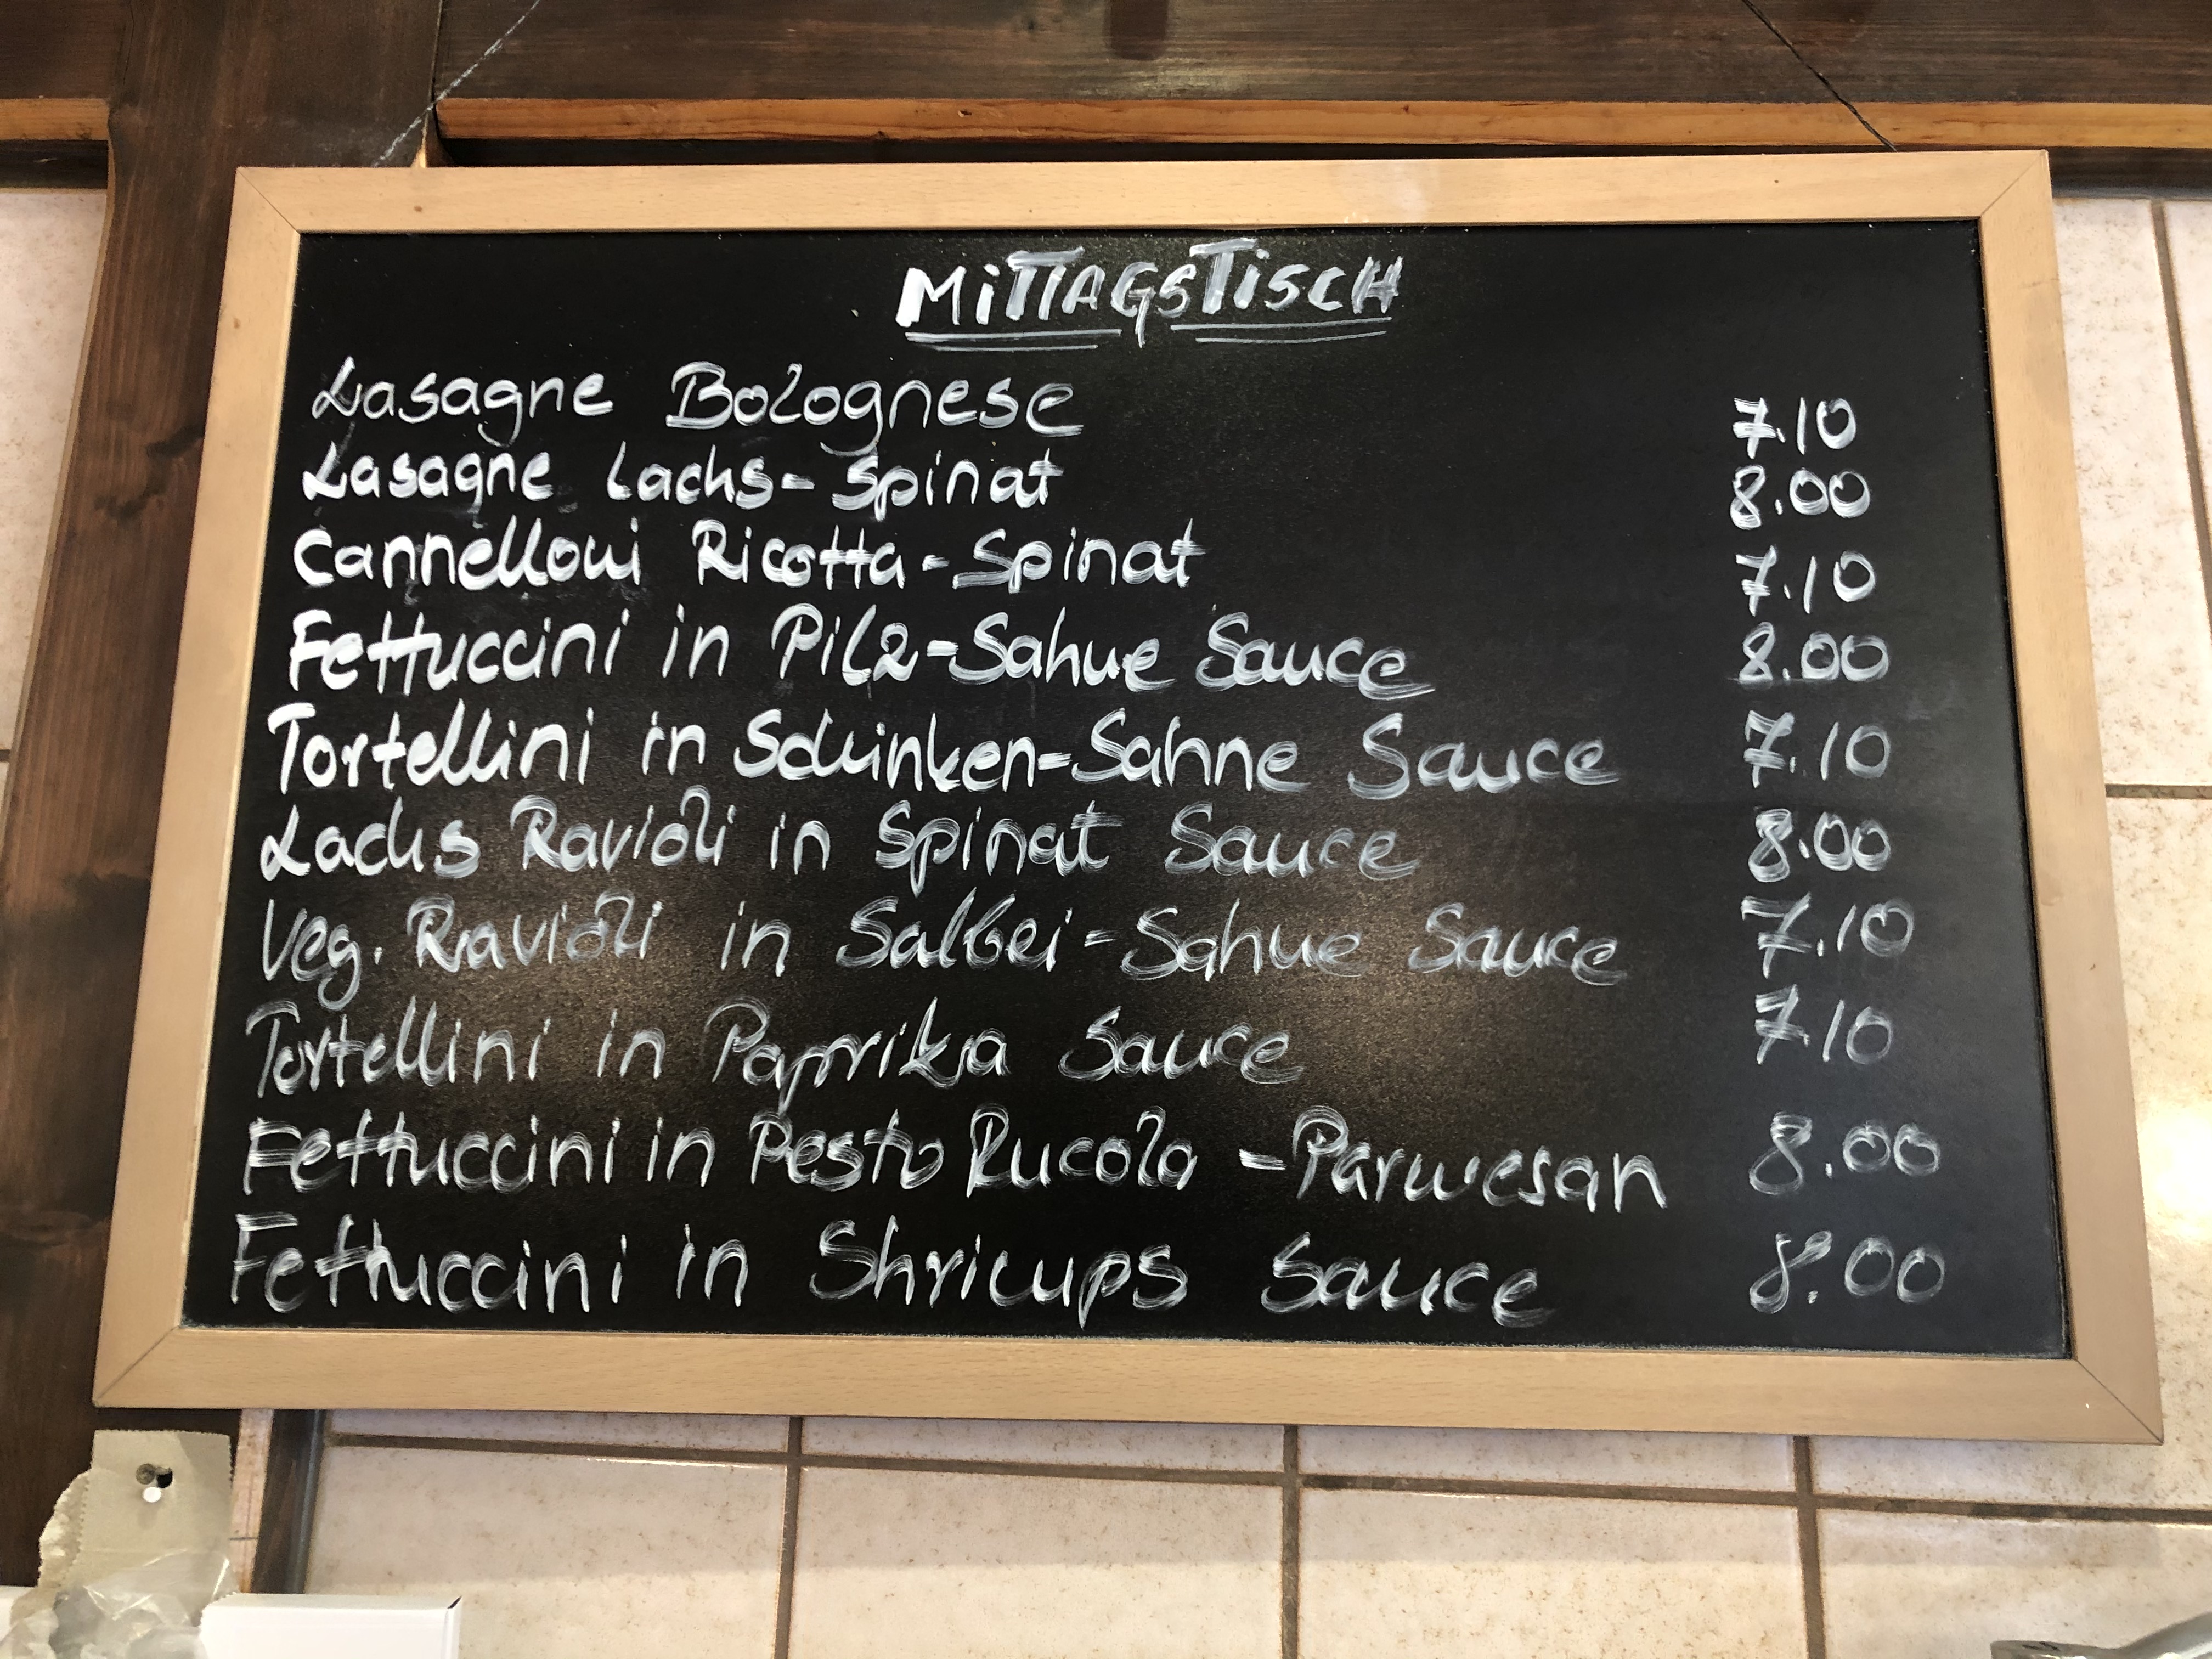 MiTTAGSTiSCH
Lasagne Bolognese 7.10
Lasagne Lachs-Spinat 8.00
Cannelloni Ricotta-Spinat 7.10
Fettuccini in Pilz-Sahne Sauce 8.00
Tortellini in Schinken-Sahne Sauce 7.10
Lachs Ravioli in Spinat Sauce 8.00
Veg. Ravioli in Salbei-Sahne Sauce 7.10
Tortellini in Paprika Sauce 7.10
Fettuccini in Pesto Rucola-Parmesan 8.00
Fettuccini in Shrimps Sauce 8.00